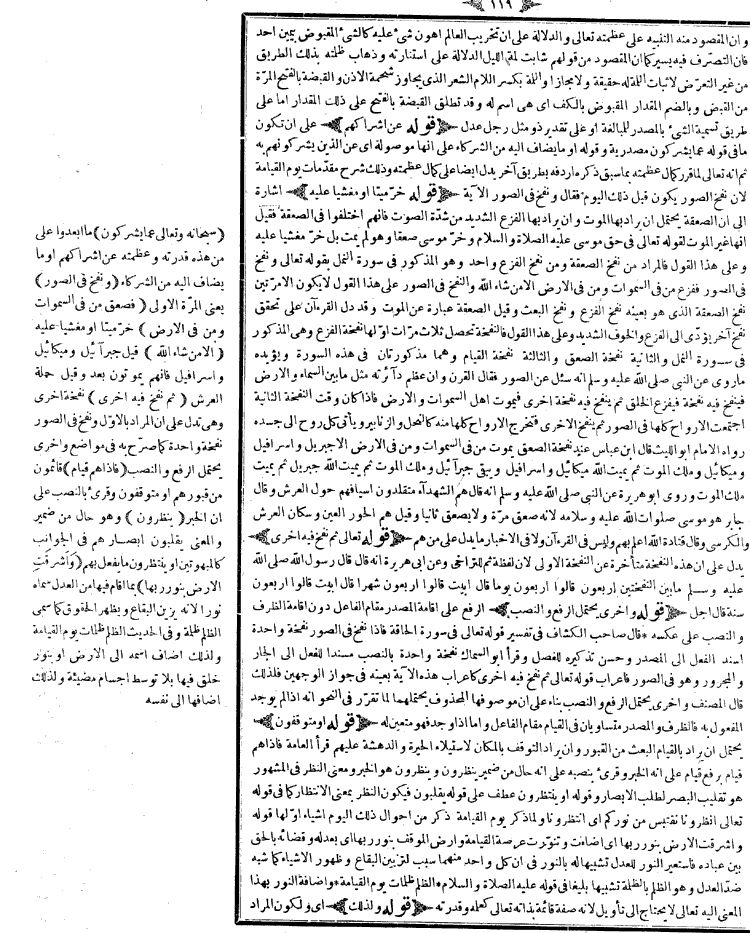 ١١٩
وان المقصود منه التنبيه على عظمته تعالى والدلالة على ان تخريب العالم اهون شئ عليه كالشئ المقبوض بيمين احد
فان التصرف فيه يسير كما ان المقصود من قولهم شابت لمة الليل الدلالة على استنارته وذهاب ظلمته بذلك الطريق
من غير التعرض لاثبات اللمة له حقيقة ولا مجازا واللمة بكسر اللام الشعر الذى يجاوز شحمة الاذن والقبضة بالفتح المرة
من القبض وبالضم المقدار المقبوض بالكف اى هى اسم له وقد تطلق القبضة بالفتح على ذلك المقدار اما على
طريق تسمية الشئ بالمصدر للمبالغة او على تقدير ذو مثل رجل عدل ﴿ قوله عن اشراكهم ﴾ على ان تكون
ما فى قوله عما يشركون مصدرية وقوله او ما يضاف اليه من الشركاء على انها موصولة اى عن الذين يشركونهم به
ثم انه تعالى لما قرر كمال عظمته بما سبق ذكره اردفه بطريق آخر يدل ايضا على كمال عظمته وذلك شرح مقدمات يوم القيامة
لان نفخ الصور يكون قبل ذلك اليوم فقال ونفخ فى الصور الآية ﴿ قوله خر ميتا او مغشيا عليه ﴾ اشارة
الى ان الصعقة يحتمل ان يراد بها الموت وان يراد بها الفزع الشديد من شدة الصوت فانهم اختلفوا فى الصعقة فقيل
انها غير الموت لقوله تعالى فى حق موسى عليه الصلاة والسلام وخر موسى صعقا وهو لم يمت بل خر مغشيا عليه
وعلى هذا القول فالمراد من نفخ الصعقة ومن نفخ الفزع واحد وهو المذكور فى سورة النمل بقوله تعالى ونفخ
فى الصور ففزع من فى السموات ومن فى الارض الا من شاء الله والنفخ فى الصور على هذا القول لا يكون الا مرتين
نفخ الصعقة الذى هو بعينه نفخ الفزع ونفخ البعث وقيل الصعقة عبارة عن الموت وقد دل القرءآن على تحقق
نفخ آخر يؤدى الى الفزع والخوف الشديد وعلى هذا القول فالنفخة تحصل ثلاث مرات اولها نفخة الفزع وهى المذكور
فى سورة النمل والثانية نفخة الصعق والثالثة نفخة القيام وهما مذكورتان فى هذه السورة ويؤيده
ماروى عن النبى صلى الله عليه وسلم انه سئل عن الصور فقال القرن وان عظم دآئرته مثل ما بين السماء والارض
فينفخ فيه نفخة فيفزع الخلق ثم ينفخ فيه نفخة اخرى فيموت اهل السموات والارض فاذا كان وقت النفخة الثانية
اجتمعت الارواح كلها فى الصور ثم ينفخ الاخرى فتخرج الارواح كلها منه كالنحل والزنابير ويأتى كل روح الى جسده
رواه الامام ابو الليث قال ابن عباس عند نفخة الصعق يموت من فى السموات ومن فى الارض الا جبريل واسرافيل
وميكائيل وملك الموت ثم يميت الله ميكائيل واسرافيل ويبقى جبرآئيل وملك الموت ثم يميت الله جبريل ثم يميت
ملك الموت وروى ابو هريرة عن النبى صلى الله عليه وسلم انه قال هم الشهدآء متقلدون اسيافهم حول العرش وقال
جابر هو موسى صلوات الله عليه وسلامه لانه صعق مرة ولا يصعق ثانيا وقيل هم الحور العين وسكان العرش
والكرسى وقال قتادة الله اعلم بهم وليس فى القرءآن ولا فى الاخبار ما يدل على من هم ﴿ قوله تعالى ثم نفخ فيه اخرى ﴾
يدل على ان هذه النفخة متأخرة عن النفخة الاولى لان لفظة ثم للتراخى وعن ابى هريرة انه قال قال رسول الله صلى الله
عليه وسلم ما بين النفختين اربعون قالوا اربعون يوما قال ابيت قالوا اربعون شهرا قال ابيت قالوا اربعون
سنة قال اجل ﴿ قوله واخرى يحتمل الرفع والنصب ﴾ الرفع على اقامة المصدر مقام الفاعل دون اقامة الظرف
والنصب على عكسه * قال صاحب الكشاف فى تفسير قوله تعالى فى سورة الحاقة فاذا نفخ فى الصور نفخة واحدة
اسند الفعل الى المصدر وحسن تذكيره للفصل وقرأ ابو السماك نفخة واحدة بالنصب مسندا للفعل الى الجار
والمجرور وهو فى الصور فاعراب قوله تعالى ثم نفخ فيه اخرى كاعراب هذه الآية بعينه فى جواز الوجهين فلذلك
قال المصنف واخرى يحتمل الرفع والنصب بناء على ان موصوفها المحذوف يحتملهما لما تقرر فى النحو انه اذا لم يوجد
المفعول به فالظرف والمصدر متساويان فى القيام مقام الفاعل واما اذا وجد فهو متعين له ﴿ قوله او متوقفون ﴾
يحتمل ان يراد بالقيام البعث من القبور وان يراد التوقف بالمكان لاستيلاء الحيرة والدهشة عليهم قرأ العامة فاذاهم
قيام برفع قيام على انه الخبر وقرئ بنصبه على انه حال من ضمير ينظرون وينظرون هو الخبر ومعنى النظر فى المشهور
هو تقليب البصر لطلب الابصار وقوله او ينتظرون عطف على قوله يقلبون فيكون النظر بمعنى الانتظار كما فى قوله
تعالى انظرونا نقتبس من نوركم اى انتظرونا ولما ذكر يوم القيامة ذكر من احوال ذلك اليوم اشياء اولها قوله
واشرقت الارض بنور ربها اى اضاءت وتنورت عرصة القيامة وارض الموقف بنور ربها اى بعدله وقضائه بالحق
بين عباده فاستعير النور للعدل تشبيها له بالنور فى ان كل واحد منهما سبب لتزيين البقاع وظهور الاشياء كما شبه
ضد العدل وهو الظلم بالظلمة تشبيها بليغا فى قوله عليه الصلاة والسلام * الظلم ظلمات يوم القيامة * واضافة النور بهذا
المعنى اليه تعالى لا يحتاج الى تأويل لانه صفة قائمة بذاته تعالى كعلمه وقدرته ﴿ قوله ولذلك ﴾ اى ولكون المراد
(سبحانه وتعالى عما يشركون) ما ابعدوا على
من هذه قدرته وعظمته عن اشراكهم او ما
يضاف اليه من الشركاء (ونفخ فى الصور)
يعنى المرة الاولى (فصعق من فى السموات
ومن فى الارض) خر ميتا او مغشيا عليه
(الا من شاء الله) قيل جبرآئيل وميكائيل
واسرافيل فانهم يموتون بعد وقيل حملة
العرش (ثم نفخ فيه اخرى) نفخة اخرى
وهى تدل على ان المراد بالاول ونفخ فى الصور
نفخة واحدة كما صرح به فى مواضع واخرى
يحتمل الرفع والنصب (فاذاهم قيام) قائمون
من قبورهم او متوقفون وقرئ بالنصب على
ان الخبر (ينظرون) وهو حال من ضمير
والمعنى يقلبون ابصارهم فى الجوانب
كالمبهوتين او ينتظرون ما يفعل بهم (واشرقت
الارض بنور ربها) بما اقام فيها من العدل سماه
نورا لانه يزين البقاع ويظهر الحقوق كما سمى
الظلم ظلمة وفى الحديث الظلم ظلمات يوم القيامة
ولذلك اضاف اسمه الى الارض او بنور
خلق فيها بلا توسط اجسام مضيئة ولذلك
اضافها الى نفسه